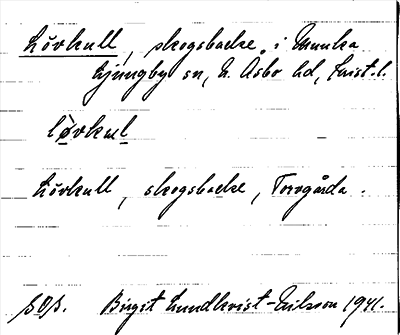 Lövkull, skogsbacke i Munka
Ljungby sn, N. Åsbo hd, Krist. l.
lövkul
Lövkull, skogsbacke, Torsgårda.
s. 0/1.
Birgit Lundkvist-Nilsson 1941.